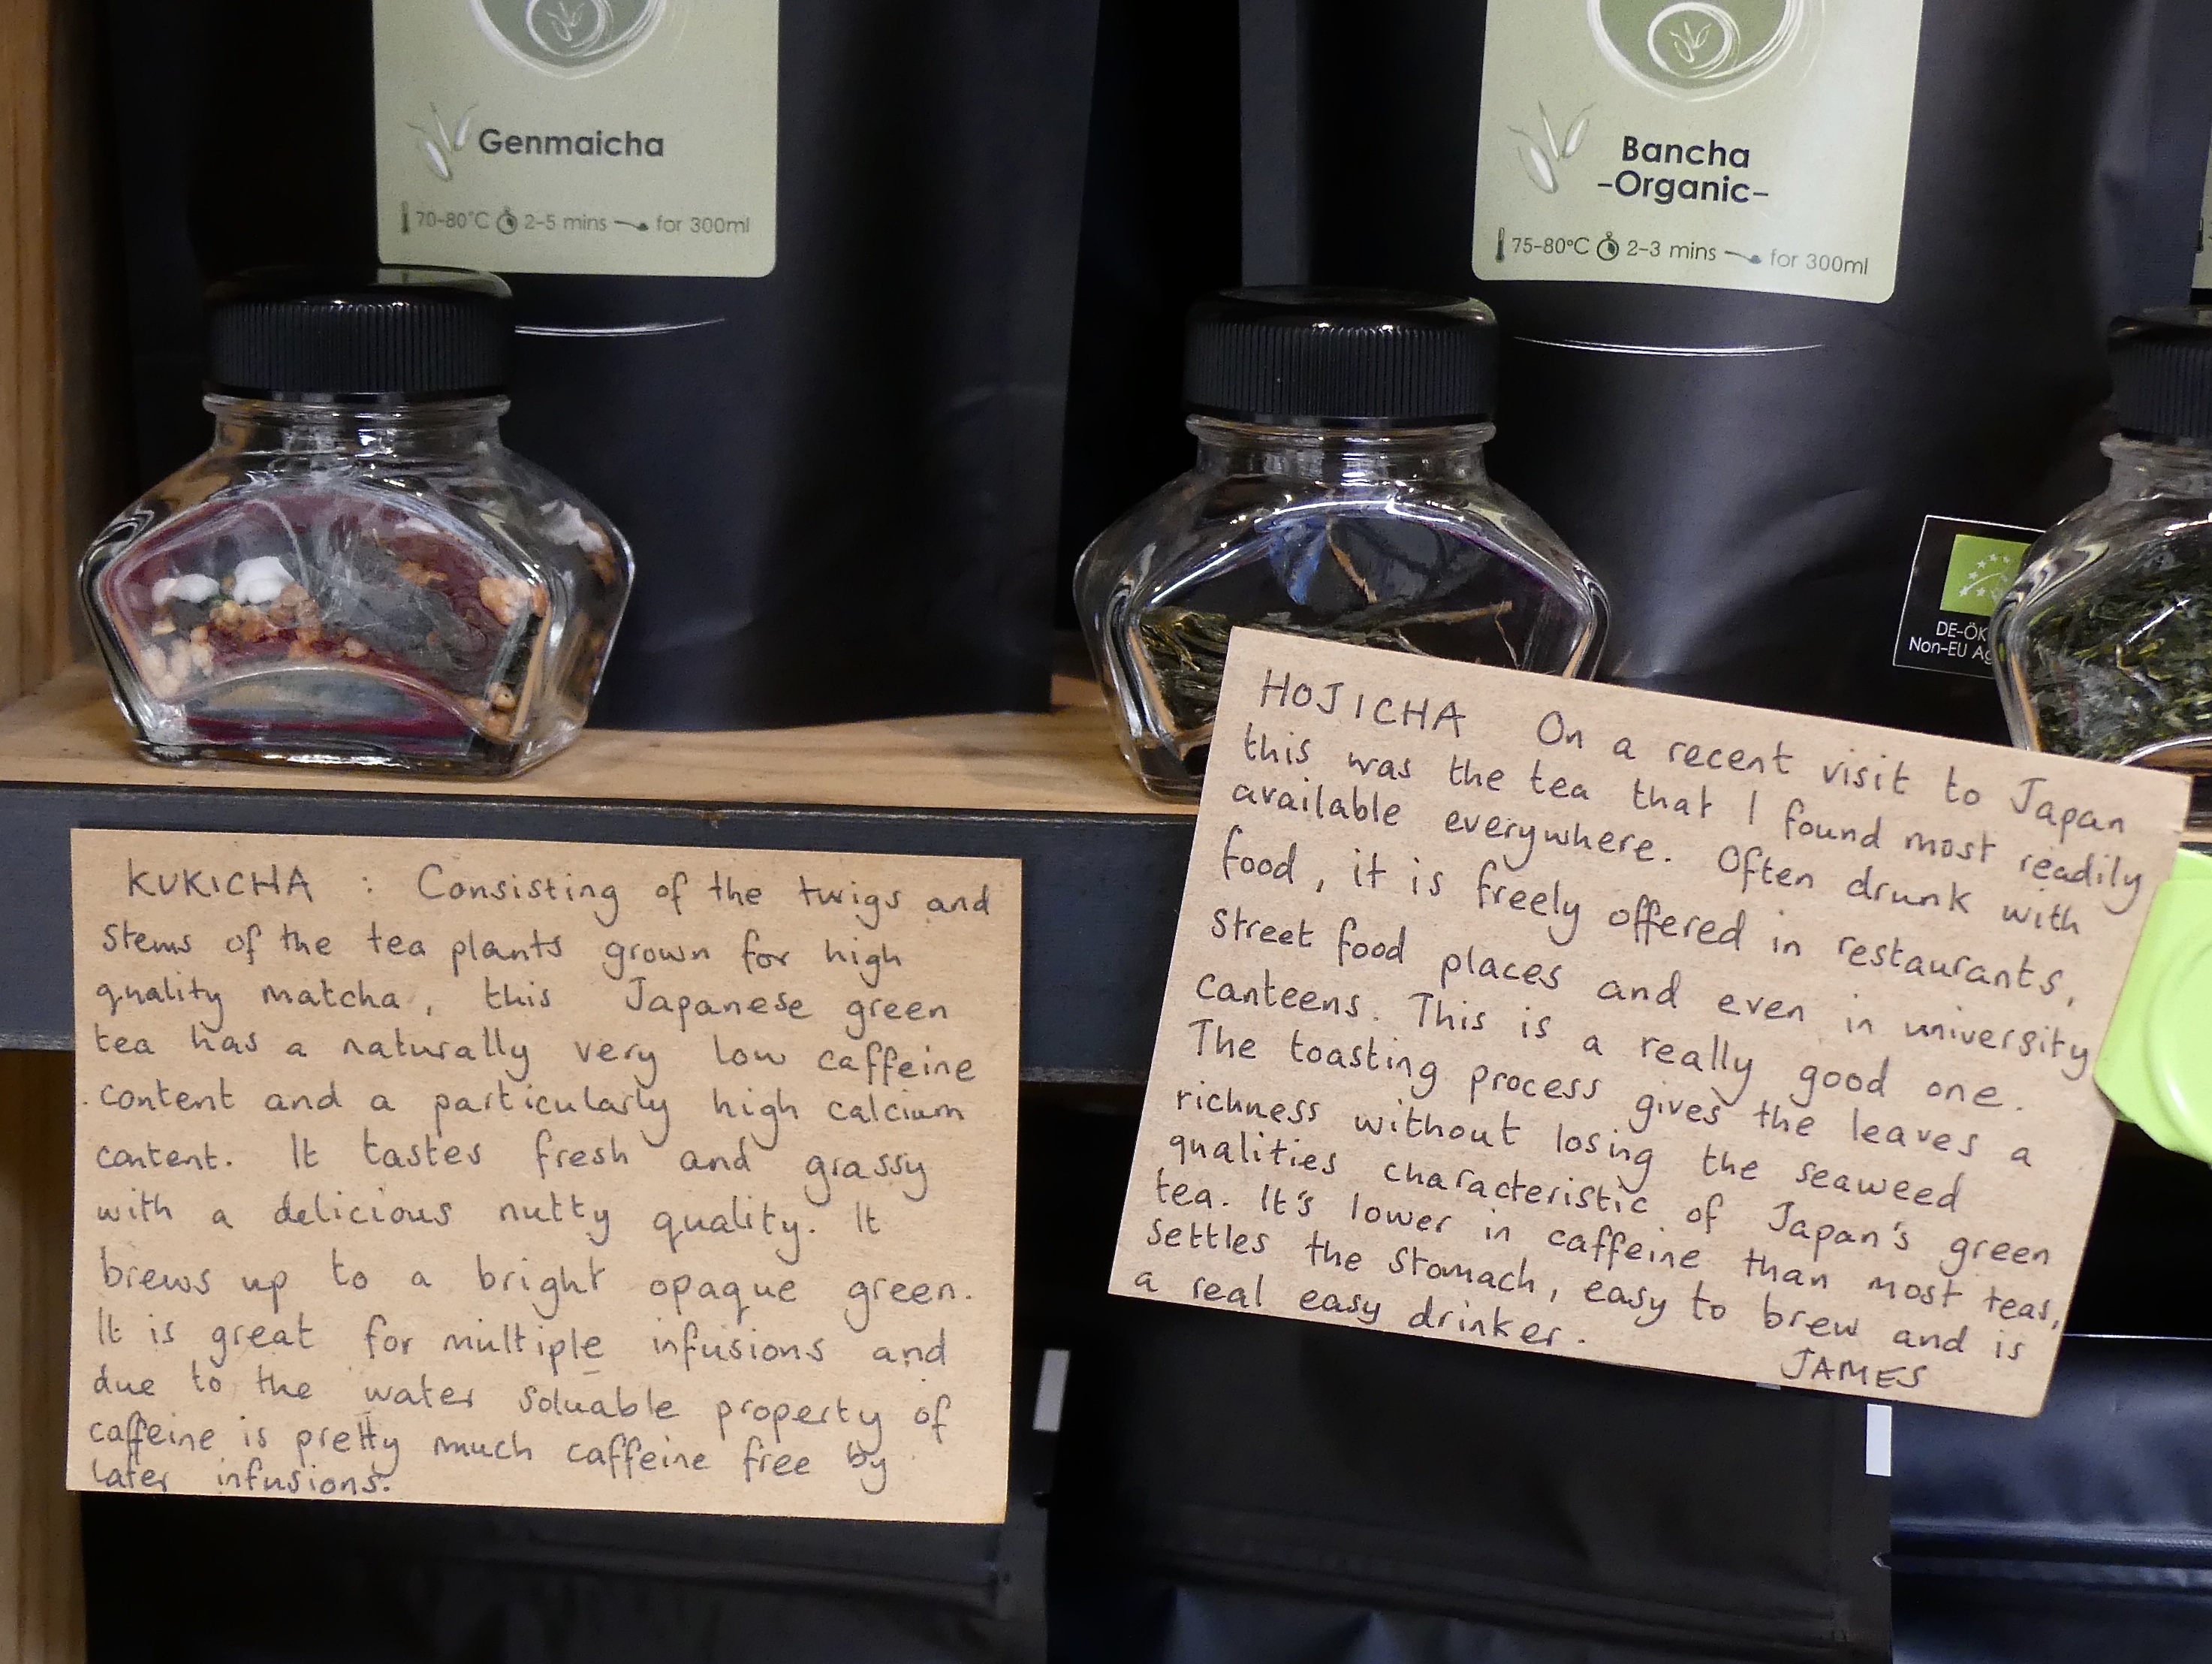 Genmaicha
70-80°C 2-5 mins for 300ml
Bancha
-Organic-
75-80°C 2-3 mins for 300ml
DE-ÖK
Non-EU
KUKICHA : Consisting of the twigs and
stems of the tea plants grown for high
quality matcha, this Japanese green
tea has a naturally very low caffeine
content and a particularly high calcium
content. It tastes fresh and grassy
with a delicious nutty quality. It
brews up to a bright opaque green.
It is great for multiple infusions and
due to the water soluable property of
caffeine is pretty much caffeine free by
later infusions.
HOJICHA On a recent visit to Japan
this was the tea that I found most readily
available everywhere. Often drunk with
food, it is freely offered in restaurants,
street food places and even in university
canteens. This is a really good one.
The toasting process gives the leaves a
richness without losing the seaweed
qualities characteristic of Japan's green
tea. It's lower in caffeine than most teas,
settles the stomach, easy to brew and is
a real easy drinker.
JAMES